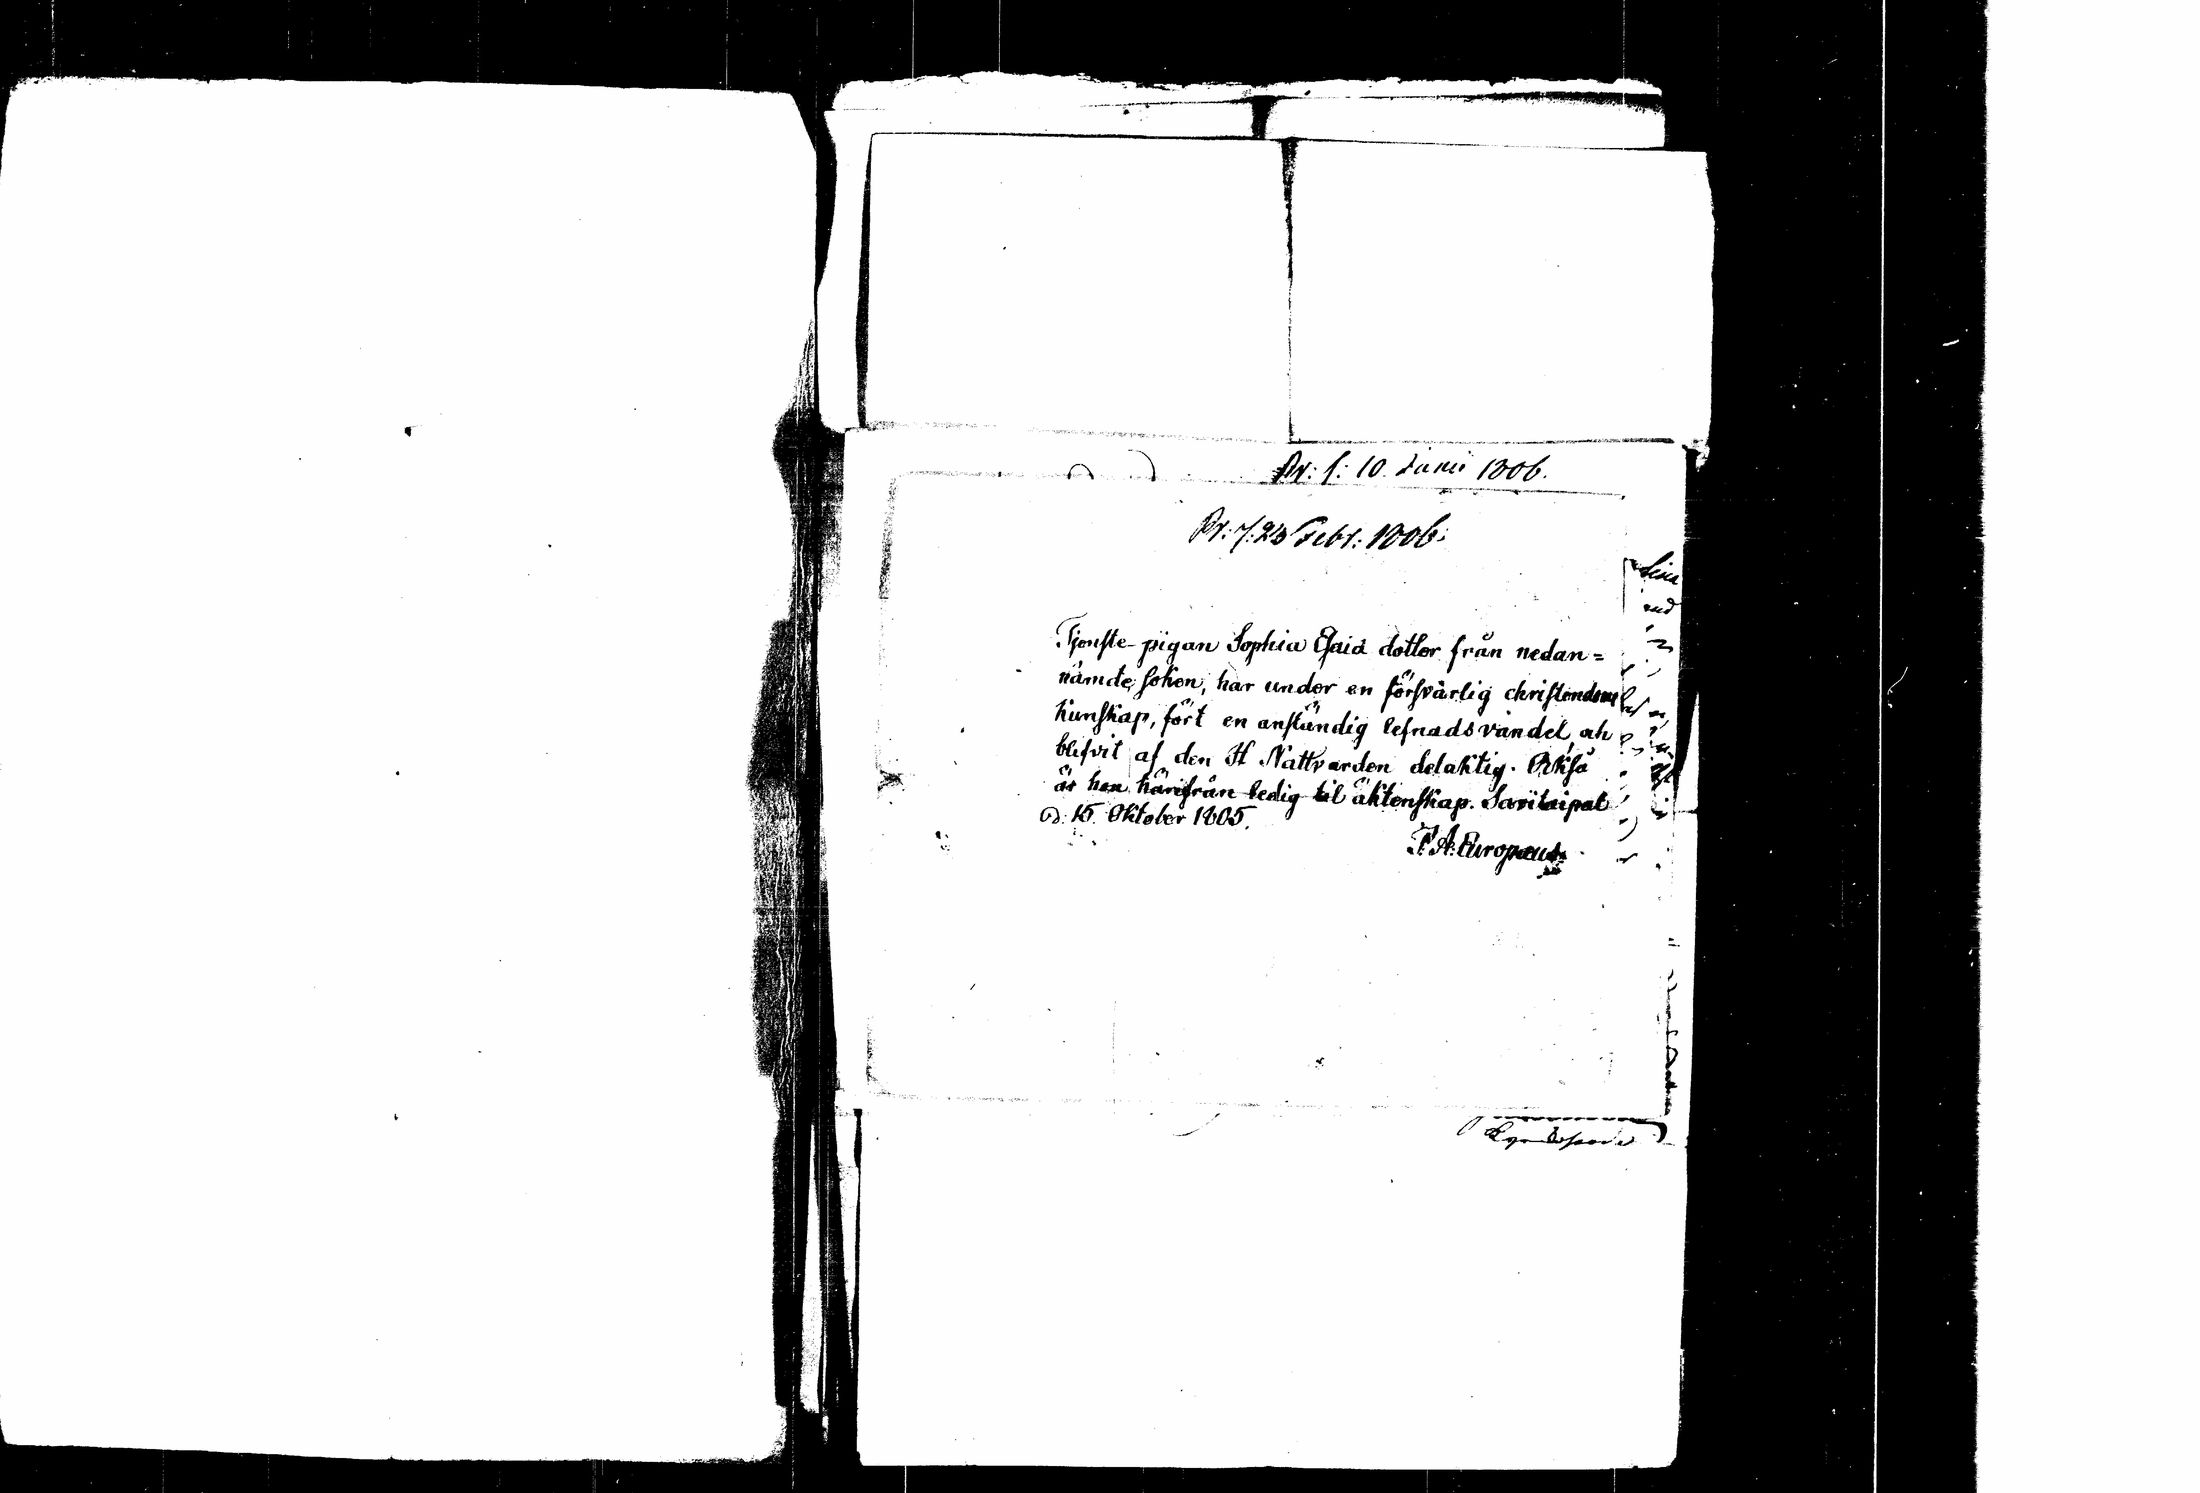 Pr: f: 10. Junii 1806.
Pr: f: 23 Febr: 1806.
Tjenste-pigan Sophia Esaiæ dotter från nedan=
nämde soken, har under en försvarlig christendoms
kunskap, fört en anständig lefnadsvandel, och
blifvit af den H Nattvarden delaktig. Också
är hon härifrån ledig til äktenskap. Savitaipal
d. 15. Oktober 1805.
P. A. Europæus